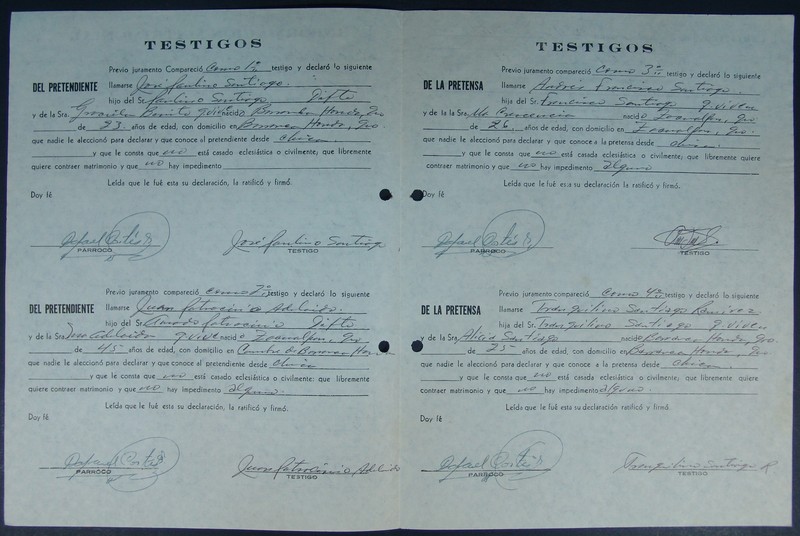 TESTIGOS
Previo juramento Compareció Como 1º testigo y declaró lo siguiente
DEL PRETENDIENTE llamarse José Paulino Santiago.
hijo del Sr. Paulino Santiago Difto
y de la Sra. Bonito nacido Barranca Honda, Gro
de 23 años de edad, con domicilio en Barranca Honda, Gro.
que nadie le aleccionó para declarar y que conoce al pretendiente desde
y que le consta que no está casado eclesiástica o civilmente; que libremente
quiere contraer matrimonio y que no hay impedimento
Leída que le fué esta su declaración, la ratificó y firmó.
Doy fé
Rafael Cortés
PARROCO
José Paulino Santiago
TESTIGO
Previo juramento compareció como 2º testigo y declaró lo siguiente
DEL PRETENDIENTE llamarse Juan Patrocinio Adelaido
hijo del Sr. Patrocinio Difto
y de la Sra. q. vive nacido Zoanalpa, Gro
de 45 años de edad, con domicilio en Barranca Honda
que nadie le aleccionó para declarar y que conoce al pretendiente desde
y que le consta que no está casado eclesiástica o civilmente: que libremente
quiere contraer matrimonio y que no hay impedimento alguno.
Leída que le fué esta su declaración, la ratificó y firmó.
Doy fé
Rafael Cortés
PARROCO
Juan Patrocinio Adelaido
TESTIGO
TESTIGOS
Previo juramento compareció Como 3º testigo y declaró lo siguiente
DE LA PRETENSA llamarse Andrés Francisco Santiago.
hijo del Sr. Francisco Santiago q. viven
y de la Sra. Ma Crecencia nacido Zoanalpa, Gro
de 26 años de edad, con domicilio en Zoanalpa, Gro.
que nadie le aleccionó para declarar y que conoce a la pretensa desde
y que le consta que no está casada eclesiástica o civilmente; que libremente quiere
contraer matrimonio y que no hay impedimento alguno
Leída que le fué esta su declaración, la ratificó y firmó.
Doy fé
Rafael Cortés
PARROCO
TESTIGO
Previo juramento compareció Como 4º testigo y declaró lo siguiente
DE LA PRETENSA llamarse Tranquilino Santiago Ramírez
hijo del Sr. Tranquilino Santiago q. viven
y de la Sra. Alicia Santiago nacido Barranca Honda, Gro.
de 25 años de edad, con domicilio en Barranca Honda, Gro
que nadie le aleccionó para declarar y que conoce a la pretensa desde
y que le consta que no está casada eclesiástica o civilmente; que libremente quiere
contraer matrimonio y que no hay impedimento alguno
Leída que le fué esta su declaración, la ratificó y firmó.
Doy fé
Rafael Cortés
PARROCO
Tranquilino Santiago R
TESTIGO